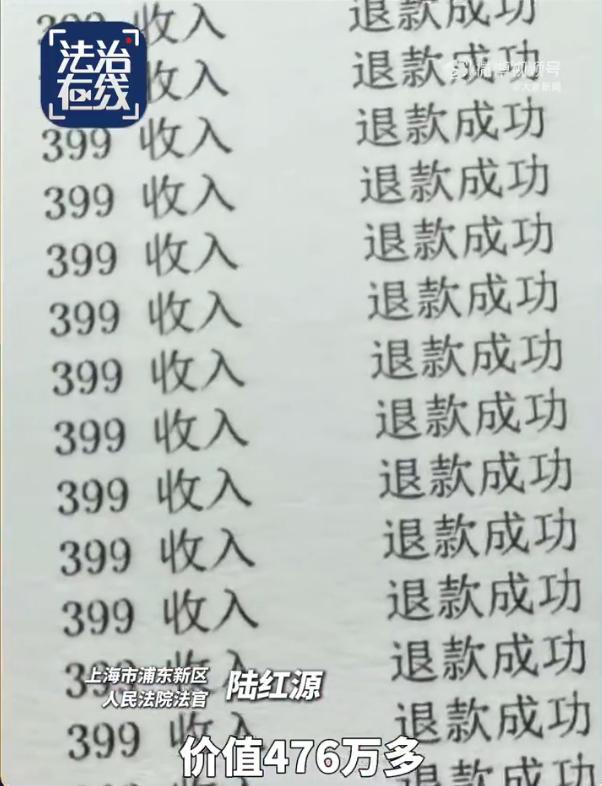 法治
在线
399 收入 退款成功
收入 退款成功
399 收入 退款成功
399 收入 退款成功
399 收入 退款成功
399 收入 退款成功
399 收入 退款成功
399 收入 退款成功
399 收入 退款成功
399 收入 退款成功
399 收入 退款成功
399 收入 退款成功
399 收入 退款成功
退款成功
上海市浦东新区
人民法院法官
陆红源
价值476万多